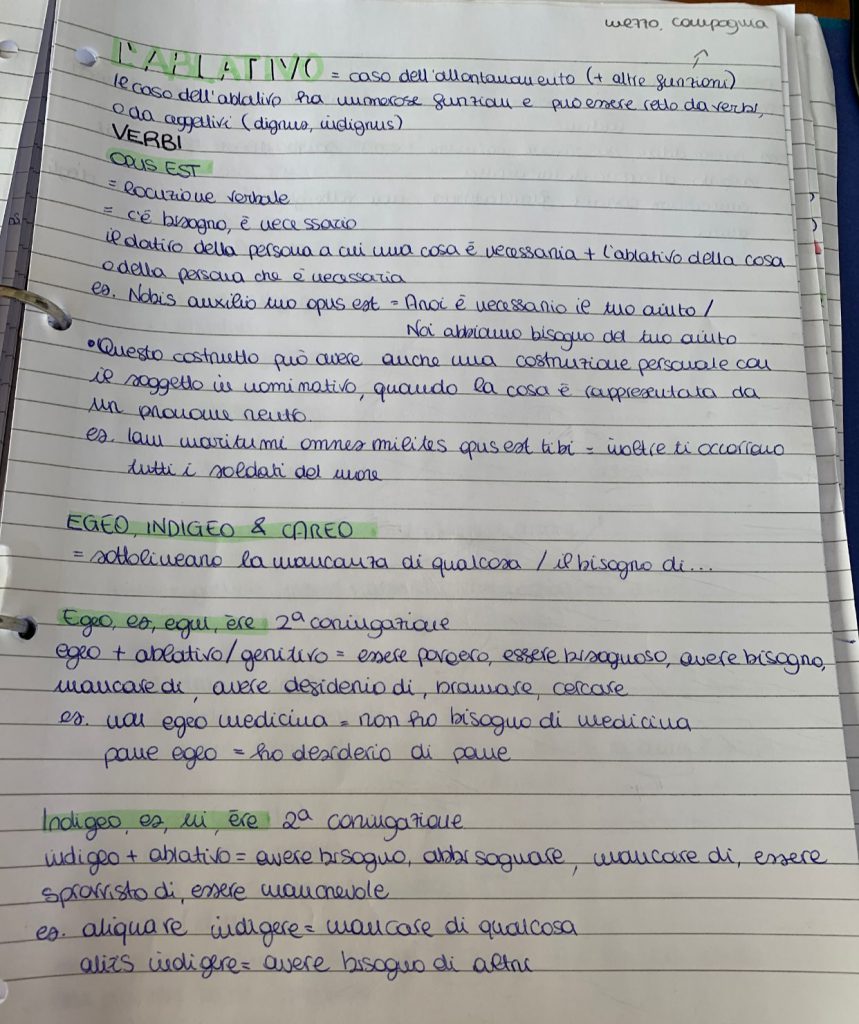 mezzo, compagnia
L'ABLATIVO = caso dell'allontanamento (+ altre funzioni)
Il caso dell'ablativo ha numerose funzioni e può essere retto da verbi,
o da aggettivi (dignus, indignus)
VERBI
OPUS EST
= locuzione verbale
= c'è bisogno, è necessario
il dativo della persona a cui una cosa è necessaria + l'ablativo della cosa
o della persona che è necessaria
es. Nobis auxilio tuo opus est = A noi è necessario il tuo aiuto /
Noi abbiamo bisogno del tuo aiuto
• Questo costrutto può avere anche una costruzione personale con
il soggetto in nominativo, quando la cosa è rappresentata da
un pronome neutro.
es. Iam maritumi omnes milites opus est tibi = inoltre ti occorrono
tutti i soldati del mare
EGEO, INDIGEO & CAREO
= sottolineano la mancanza di qualcosa / il bisogno di...
Egeo, es, egui, ēre 2ª coniugazione
egeo + ablativo/genitivo = essere povero, essere bisognoso, avere bisogno,
mancare di, avere desiderio di, bramare, cercare
es. non egeo medicina = non ho bisogno di medicina
pane egeo = ho desiderio di pane
Indigeo, es, ui, ēre 2ª coniugazione
indigeo + ablativo = avere bisogno, abbisognare, mancare di, essere
sprovvisto di, essere manchevole
es. aliqua re indigere = mancare di qualcosa
aliis indigere = avere bisogno di altri